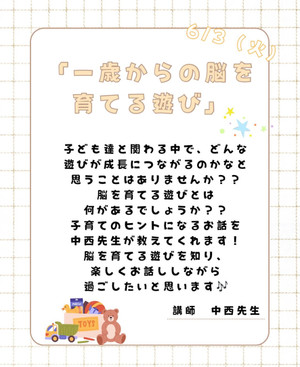 6/3（火）
「一歳からの脳を
育てる遊び」
子ども達と関わる中で、どんな
遊びが成長につながるのかなと
思うことはありませんか？？
脳を育てる遊びとは
何があるでしょうか？？
子育てのヒントになるお話を
中西先生が教えてくれます！
脳を育てる遊びを知り、
楽しくお話ししながら
過ごしたいと思います🎶
講師　中西先生
TOYS